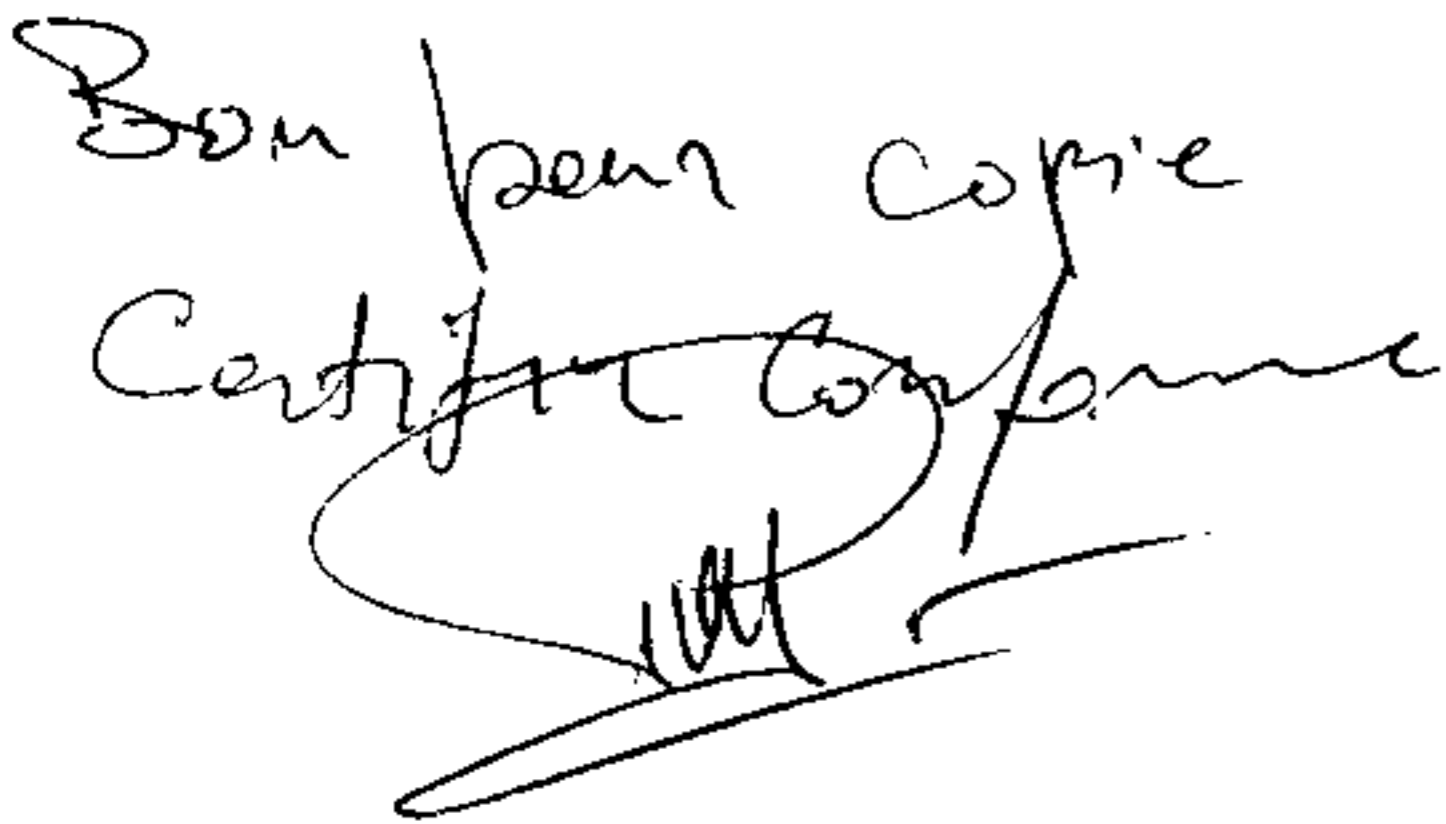 Bon pour copie
Certifiée Conforme